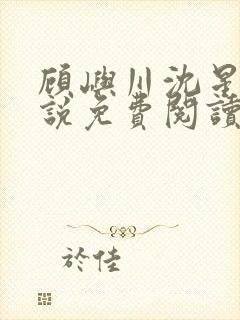 顾嶼川沈星
說免費閱讀
於佳